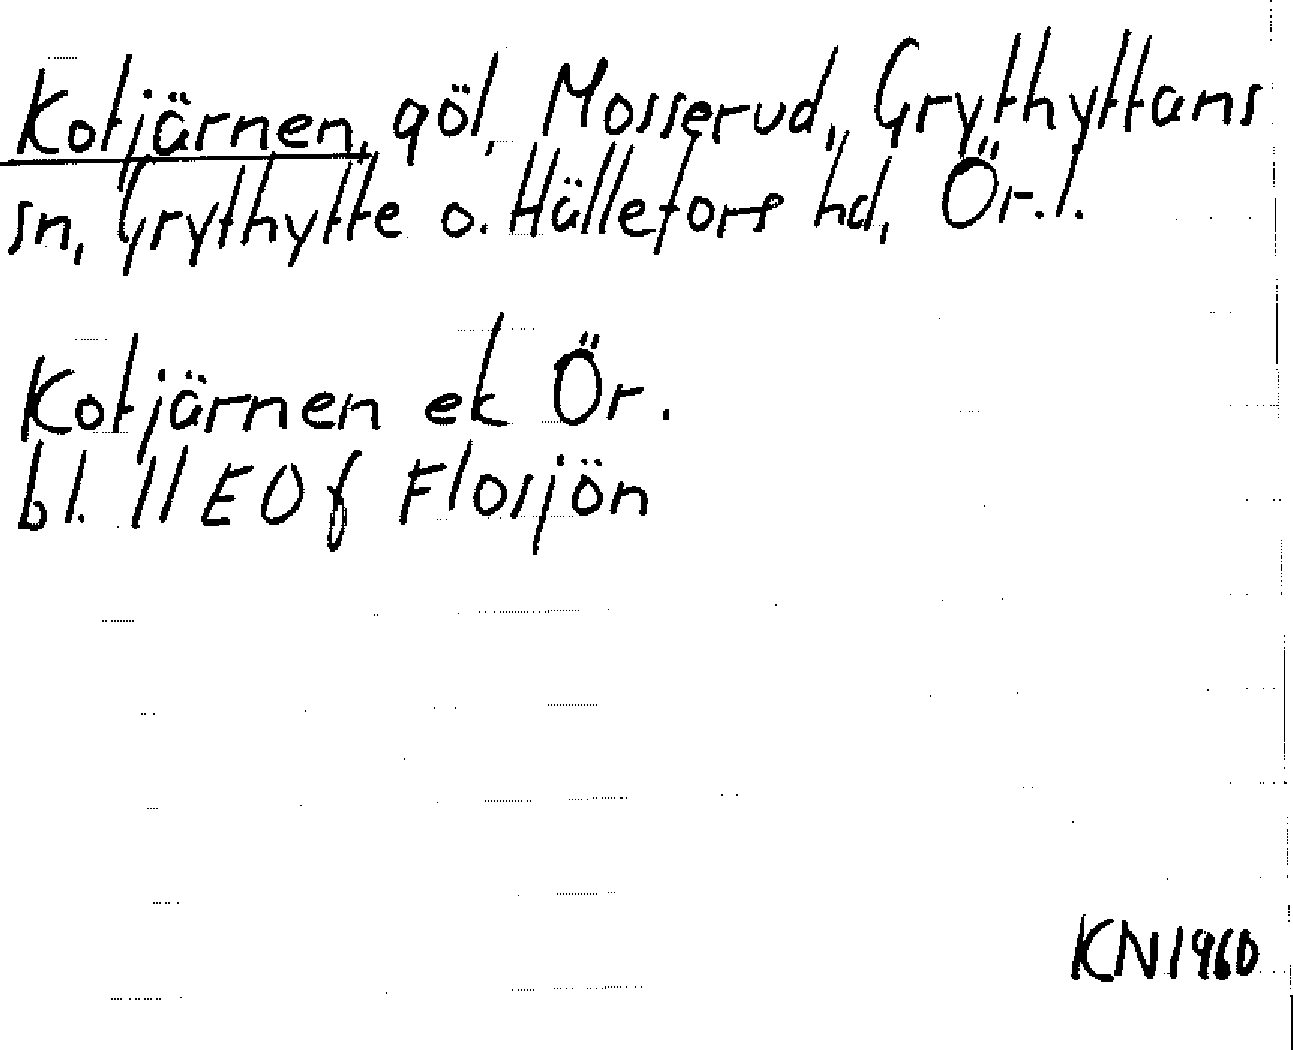 Kotjärnen, göl, Mosserud, Grythyttans
sn, Grythytte o. Hällefors hd, Ör. l.
Kotjärnen ek Ör.
bl. 11 E 0 f Flosjön
KN 1960